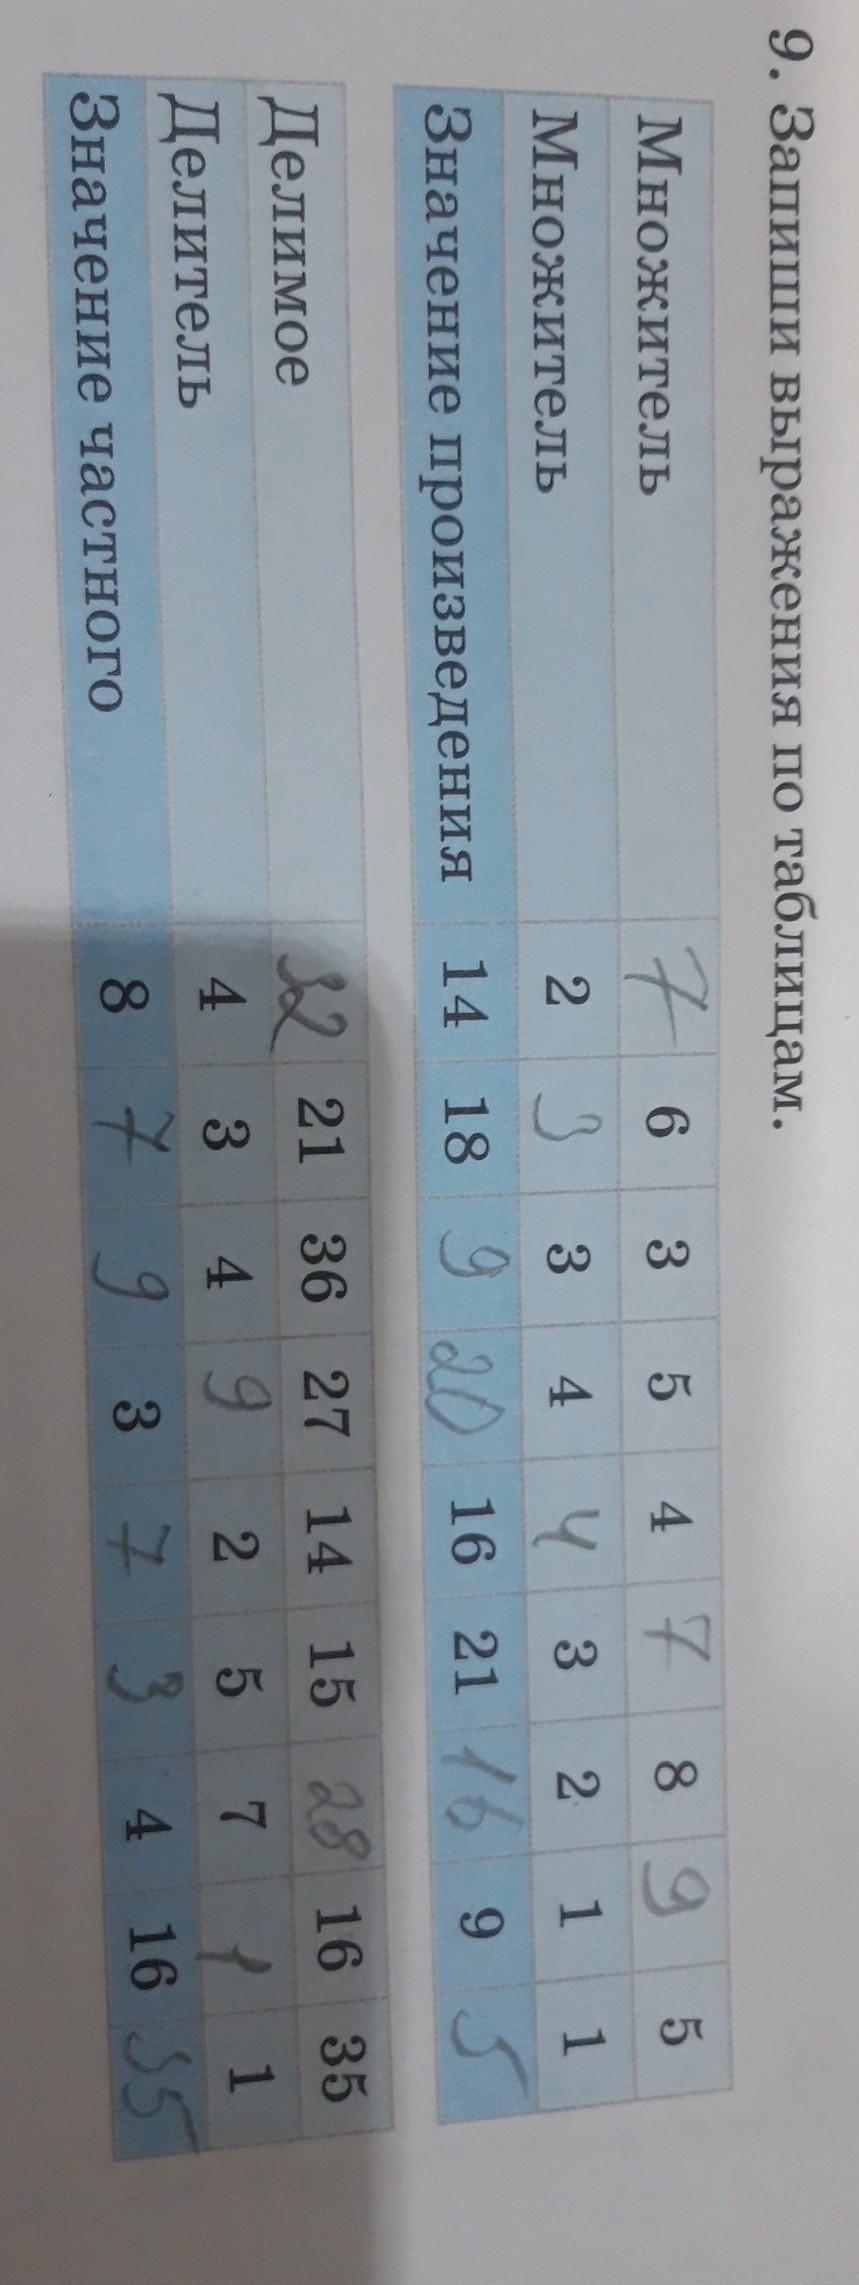 9. Запиши выражения по таблицам.
Множитель 7 6 3 5 4 7 8 9 5
Множитель 2 3 3 4 4 3 2 1 1
Значение произведения 14 18 9 20 16 21 16 9 5
Делимое 32 21 36 27 14 15 28 16 35
Делитель 4 3 4 9 2 5 7 1 1
Значение частного 8 7 9 3 7 3 4 16 35